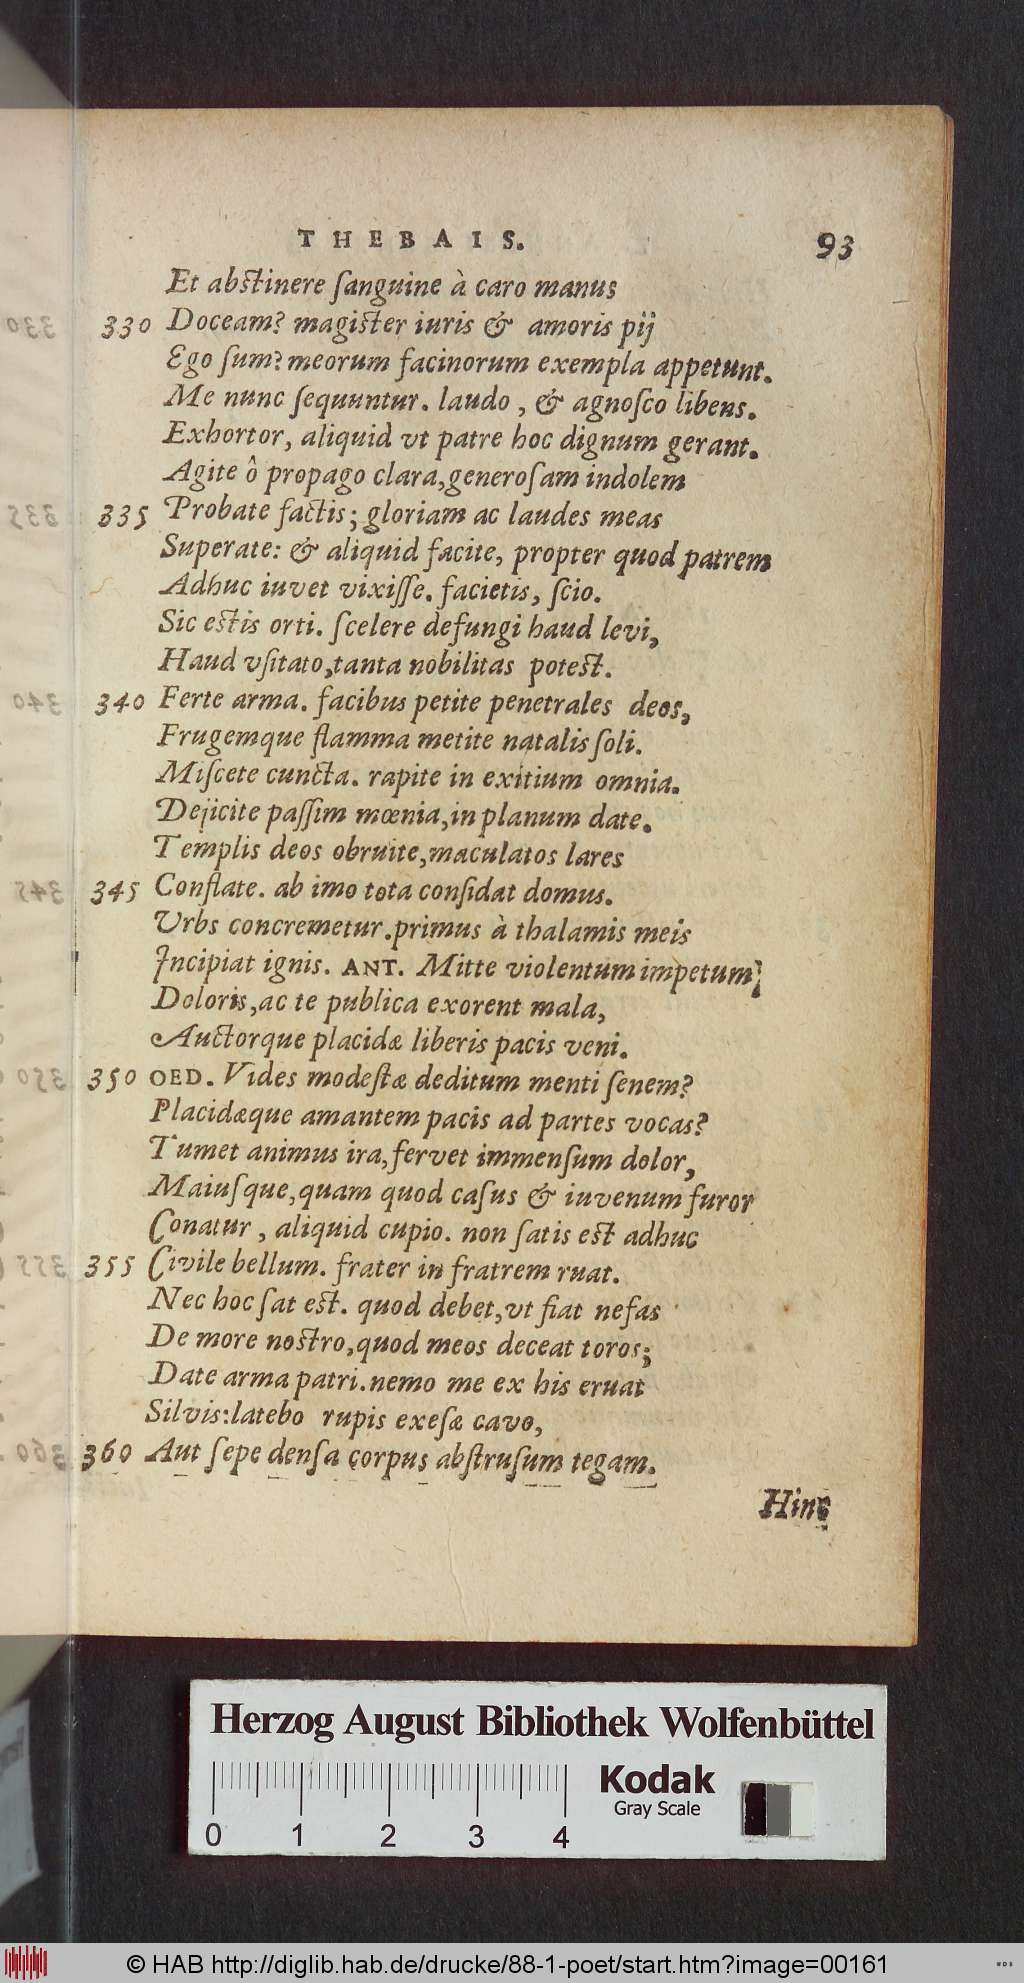 THEBAIS. 93
Et abstinere ſanguine à caro manus
330 Doceam? magister iuris & amoris pij
Ego ſum? meorum facinorum exempla appetunt.
Me nunc ſequuntur. laudo, & agnoſco libens.
Exhortor, aliquid vt patre hoc dignum gerant.
Agite ô propago clara, generoſam indolem
335 Probate factis; gloriam ac laudes meas
Superate: & aliquid facite, propter quod patrem
Adhuc iuvet vixiſſe. facietis, ſcio.
Sic estis orti. ſcelere defungi haud levi,
Haud vſitato, tanta nobilitas potest.
340 Ferte arma. facibus petite penetrales deos,
Frugemque flamma metite natalis ſoli.
Miſcete cuncta. rapite in exitium omnia.
Dejicite paſſim mœnia, in planum date.
Templis deos obruite, maculatos lares
345 Conflate. ab imo tota conſidat domus.
Vrbs concremetur. primus à thalamis meis
Incipiat ignis. ANT. Mitte violentum impetum
Doloris, ac te publica exorent mala,
Auctorque placidæ liberis pacis veni.
350 OED. Vides modeſtæ deditum menti ſenem?
Placidæque amantem pacis ad partes vocas?
Tumet animus ira, fervet immenſum dolor,
Maiuſque, quam quod caſus & iuvenum furor
Conatur, aliquid cupio. non ſatis est adhuc
355 Civile bellum. frater in fratrem ruat.
Nec hoc ſat est. quod debet, vt fiat nefas
De more nostro, quod meos deceat toros;
Date arma patri. nemo me ex his eruat
Silvis: latebo rupis exeſæ cavo,
360 Aut ſepe denſa corpus abſtruſum tegam.
Hinc
Herzog August Bibliothek Wolfenbüttel
Kodak
Gray Scale
0 1 2 3 4
© HAB http://diglib.hab.de/drucke/88-1-poet/start.htm?image=00161